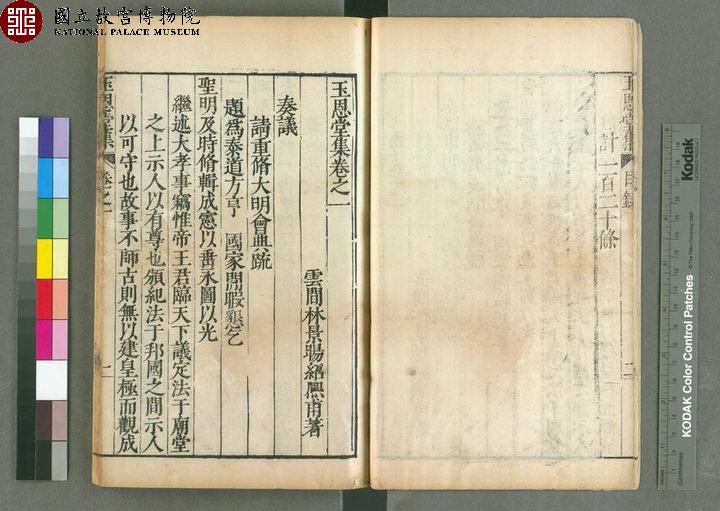 國立故宮博物院
NATIONAL PALACE MUSEUM
玉恩堂集
目錄
計一百二十條
二
玉恩堂集卷之一
雲間林景暘紹熈甫著
奏議
請重脩大明會典疏
題為泰道方亨 國家閒暇懇乞
聖明及時脩輯成憲以垂永圖以光
繼述大孝事竊惟帝王君臨天下議定法于廟堂
之上示人以有尊也頒紀法于邦國之間示人
以可守也故事不師古則無以建皇極而觀成
玉恩堂集
卷之一
一
Kodak
KODAK Color Control Patches